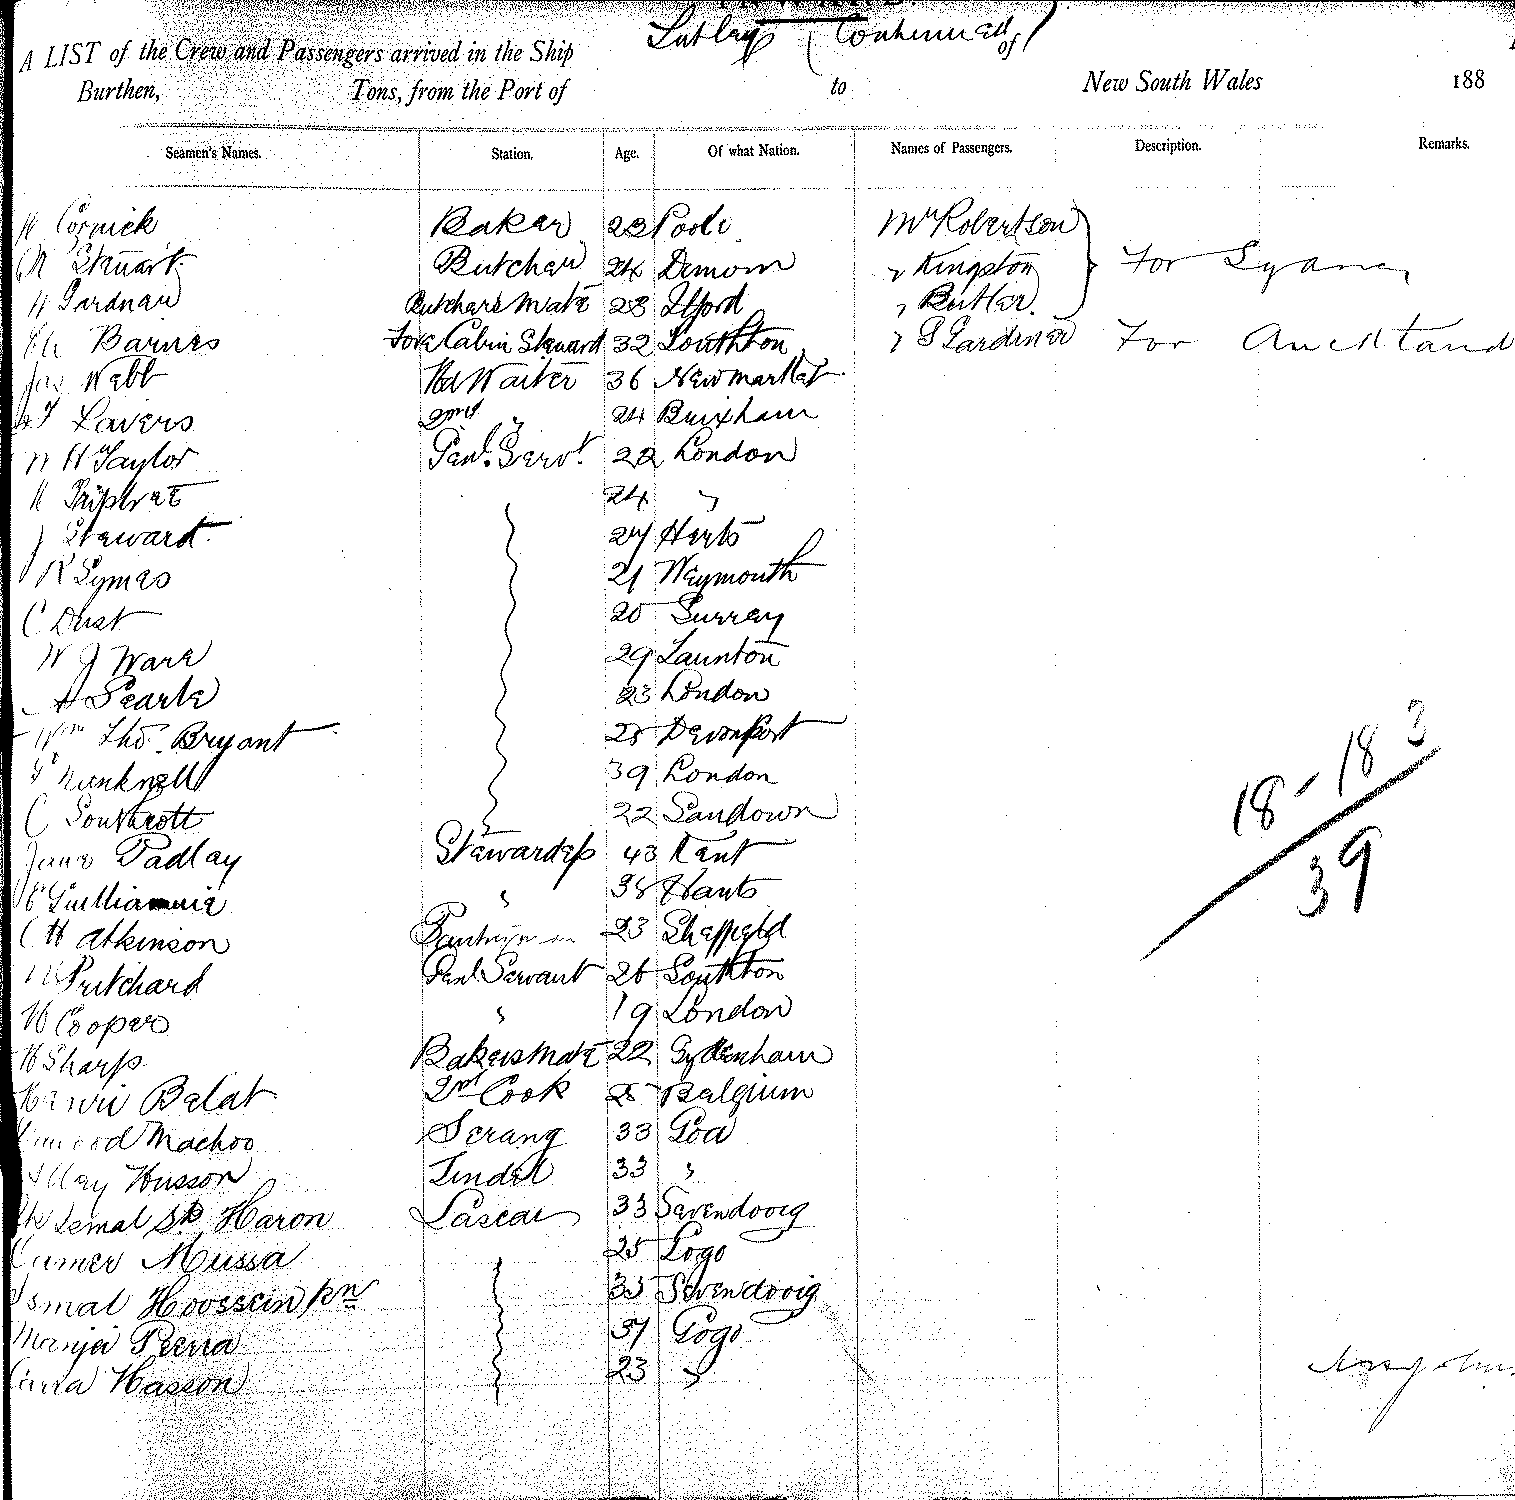 Sutlej (Continued)
A LIST of the Crew and Passengers arrived in the Ship of
Burthen, Tons, from the Port of to New South Wales 188
Seamen's Names. Station. Age. Of what Nation. Names of Passengers. Description. Remarks.
Cornick Baker 23 Poole Mr Robertson
Stewart Butcher 24 " Kingston For Sydney
H Gardner Butchers Mate 28 Ilford " Butler
Barnes Fore Cabin Steward 32 Southton " S Gardiner For Auckland
Jas Webb Hd Waiter 36 New market
Lavers 2nd " 24 Brixham
H Taylor Genl. Servt. 22 London
24 "
J Steward 27 Herts
R Symes 21 Weymouth
C Dust 20 Surrey
W J Ware 29 Launton
A Searle 23 London
Wm Tho. Bryant 28 Devonport
39 London
C Southcott 22 Sandown
Jane Padley Stewardess 43 Kent
" 38 Hants
C H Atkinson Pantryman 23 Sheffield
Pritchard Genl. Servant 26 Southton
W Cooper " 19 London
W Sharp Bakers Mate 22 Sydenham
Henri Belat 2nd Cook Belgium
Machoo Serang 33 Goa
Husson Tindel 33 "
Ismal Sk Haron Lascar 33 Severndroog
Oumer Mussa 25 Gogo
Ismal Hoossein 33 Severndroog
Perria 37 Gogo
Hasson 23 "
18 - 18 3
39